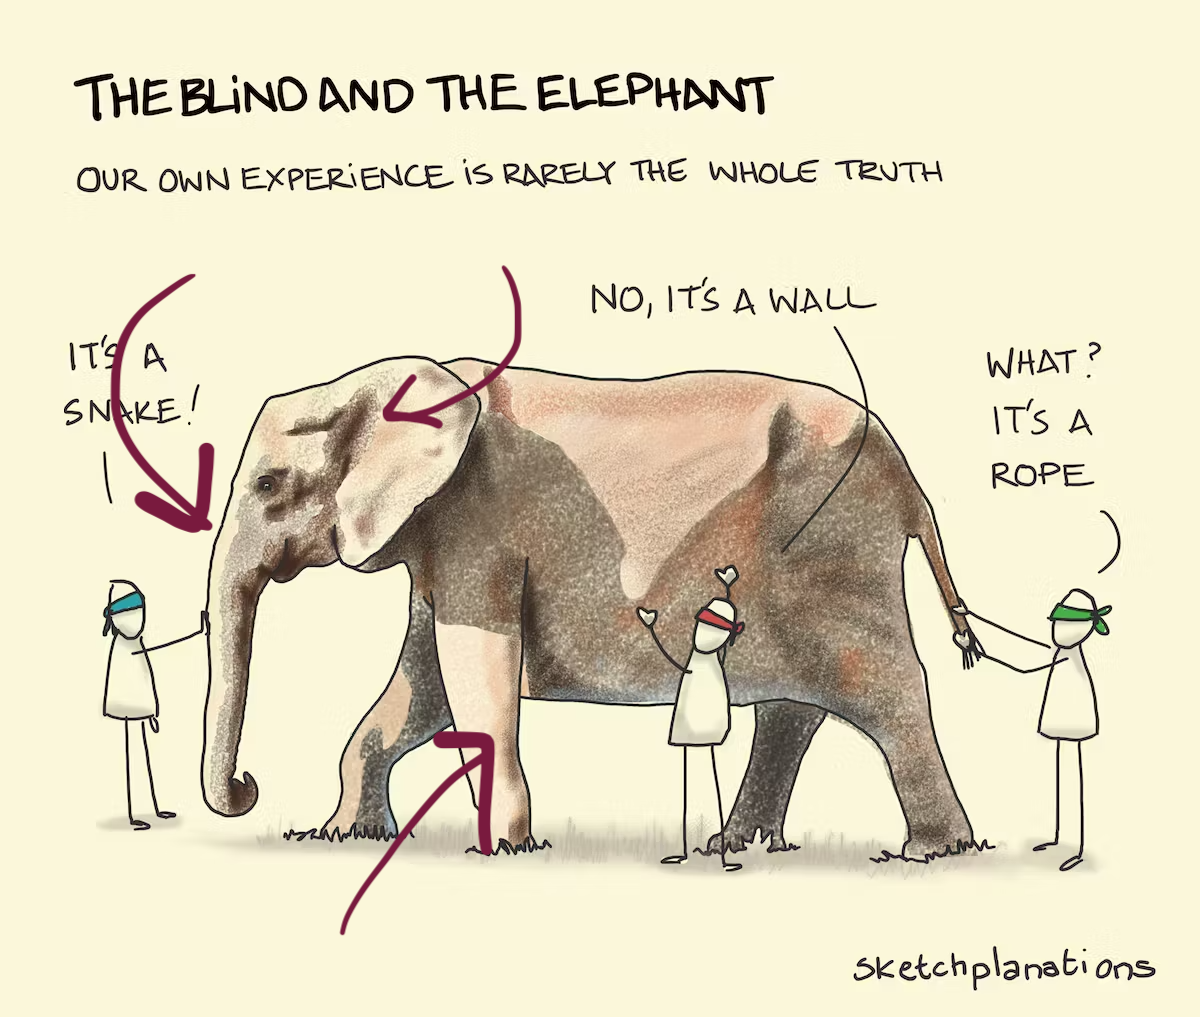 THE BLIND AND THE ELEPHANT
OUR OWN EXPERIENCE IS RARELY THE WHOLE TRUTH
IT'S A
SNAKE!
NO, IT'S A WALL
WHAT?
IT'S A
ROPE
sketchplanations